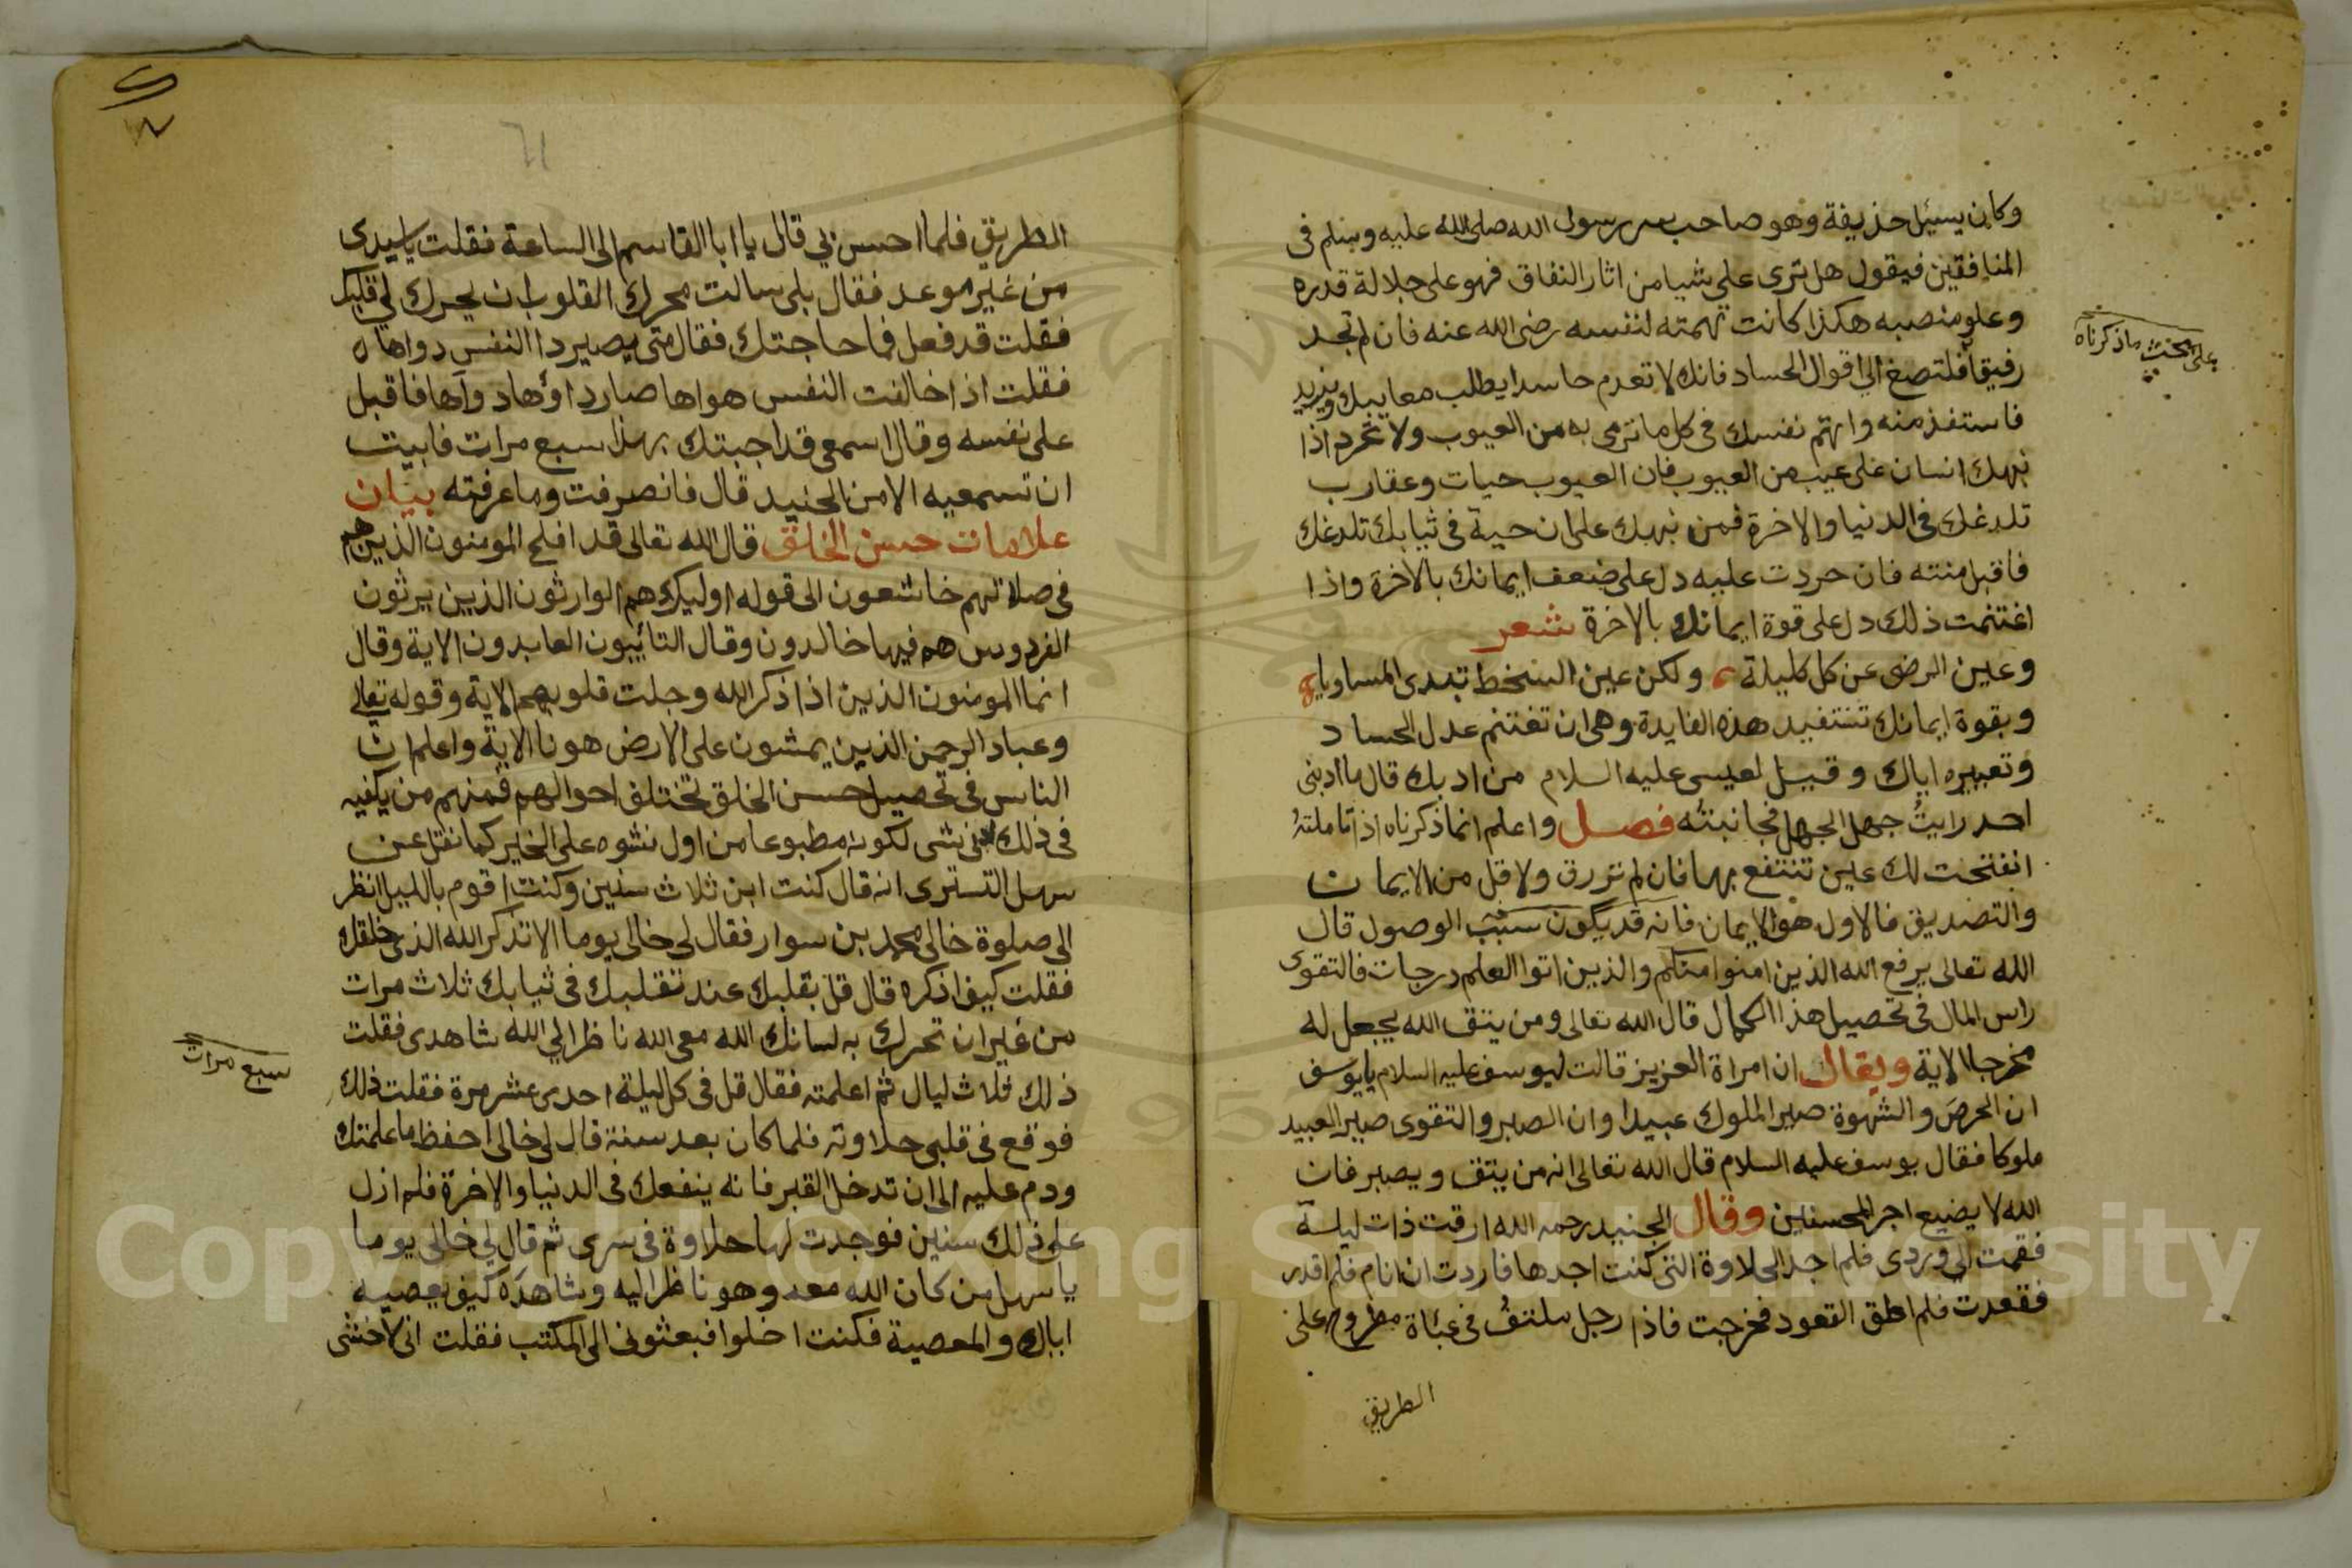 وكان يسئل حذيفة وهو صاحب سر رسول الله صلى الله عليه وسلم فى
المنافقين فيقول هل ترى على شيا من اثار النفاق فهو على جلالة قدره
وعلو منصبه هكذا كانت تهمته لنفسه رضى الله عنه فان لم تجد
رفيقا فلتصغ الى اقوال الحساد فانك لا تعدم حاسدا يطلب معايبك ويزيد
فاستفذ منه واتهم نفسك فى كل ما ترمى به من العيوب ولا تحرد اذا
نبهك انسان على عيب من العيوب فان العيوب حيات وعقارب
تلدغك فى الدنيا والاخرة فمن نبهك على ان حية فى ثيابك تلدغك
فاقبل منته فان حردت عليه دل على ضعف ايمانك بالاخرة واذا
اغتنمت ذلك دل على قوة ايمانك بالاخرة شعر
وعين الرضى عن كل كليلة ولكن عين السخط تبدى المساويا
وبقوة ايمانك تستفيد هذه الفايدة وهى ان تغتنم عدل الحساد
وتعبيره اياك وقيل لعيسى عليه السلام من ادبك قال ما ادبنى
احد رايت جهل الجهل فجانبته فصل واعلم انما ذكرناه اذ تاملته
انفتحت لك عين تنتفع بها فان لم ترزق ولا قل من الايمان
والتصديق فالاول هو الايمان فانه قد يكون سبب الوصول قال
الله تعالى يرفع الله الذين امنوا منكم والذين اتوا العلم درجات فالتقوى
راس المال فى تحصيل هذا الكمال قال الله تعالى ومن يتق الله يجعل له
مخرجا الاية ويقال ان امراة العزيز قالت ليوسف عليه السلام يا يوسف
ان الحرص والشهوة صير الملوك عبيدا وان الصبر والتقوى صير العبيد
ملوكا فقال يوسف عليه السلام قال الله تعالى انه من يتق ويصبر فان
الله لا يضيع اجر المحسنين وقال الجنيد رحمه الله ارقت ذات ليلة
فقمت الى وردى فلم اجد الحلاوة التى كنت اجدها فاردت ان انام فلم اقدر
فقعدت فلم اطق القعود فخرجت فاذا رجل ملتف فى عباة مطروح على
الطريق
على ما ذكرناه
الطريق فلما احس بى قال يا ابا القاسم الى الساعة فقلت يا سيدى
من غير موعد فقال بلى سالت محرك القلوب ان يحرك لى قلبك
فقلت قد فعل فما حاجتك فقال متى يصير دا النفس دواها
فقلت اذا خالفت النفس هواها صار داؤها دواها فاقبل
على نفسه وقال اسمعى قد اجبتك بهذا سبع مرات فابيت
ان تسمعيه الا من الجنيد قال فانصرفت وما عرفته بيان
علامات حسن الخلق قال الله تعالى قد افلح المومنون الذين هم
فى صلاتهم خاشعون الى قوله اوليك هم الوارثون الذين يرثون
الفردوس هم فيها خالدون وقال التائبون العابدون الاية وقال
انما المومنون الذين اذا ذكر الله وجلت قلوبهم الاية وقوله تعالى
وعباد الرحمن الذين يمشون على الارض هونا الاية واعلم ان
الناس فى تحصيل حسن الخلق تختلف احوالهم فمنهم من يكفيه
فى ذلك شى لكونه مطبوعا من اول نشوه على الخير كما نقل عن
سهل التسترى انه قال كنت ابن ثلاث سنين وكنت اقوم بالليل انظر
الى صلوة خالى محمد بن سوار فقال لى خالى يوما الا تذكر الله الذى خلقك
فقلت كيف اذكره قال قل بقلبك عند تقلبك فى ثيابك ثلاث مرات
من غير ان تحرك به لسانك الله معى الله ناظر الى الله شاهدى فقلت
ذلك ثلاث ليال ثم اعلمته فقال قل فى كل ليلة احدى عشر مرة فقلت ذلك
فوقع فى قلبى حلاوته فلما كان بعد سنة قال لى خالى احفظ ما علمتك
ودم عليه الى ان تدخل القبر فانه ينفعك فى الدنيا والاخرة فلم ازل
على ذلك سنين فوجدت لها حلاوة فى سرى ثم قال لى خالى يوما
يا سهل من كان الله معه وهو ناظر اليه وشاهده كيف يعصيه
اياك والمعصية فكنت اخلوا فبعثونى الى المكتب فقلت انى لاخشى
سبع مرات
Copyright © King Saud University